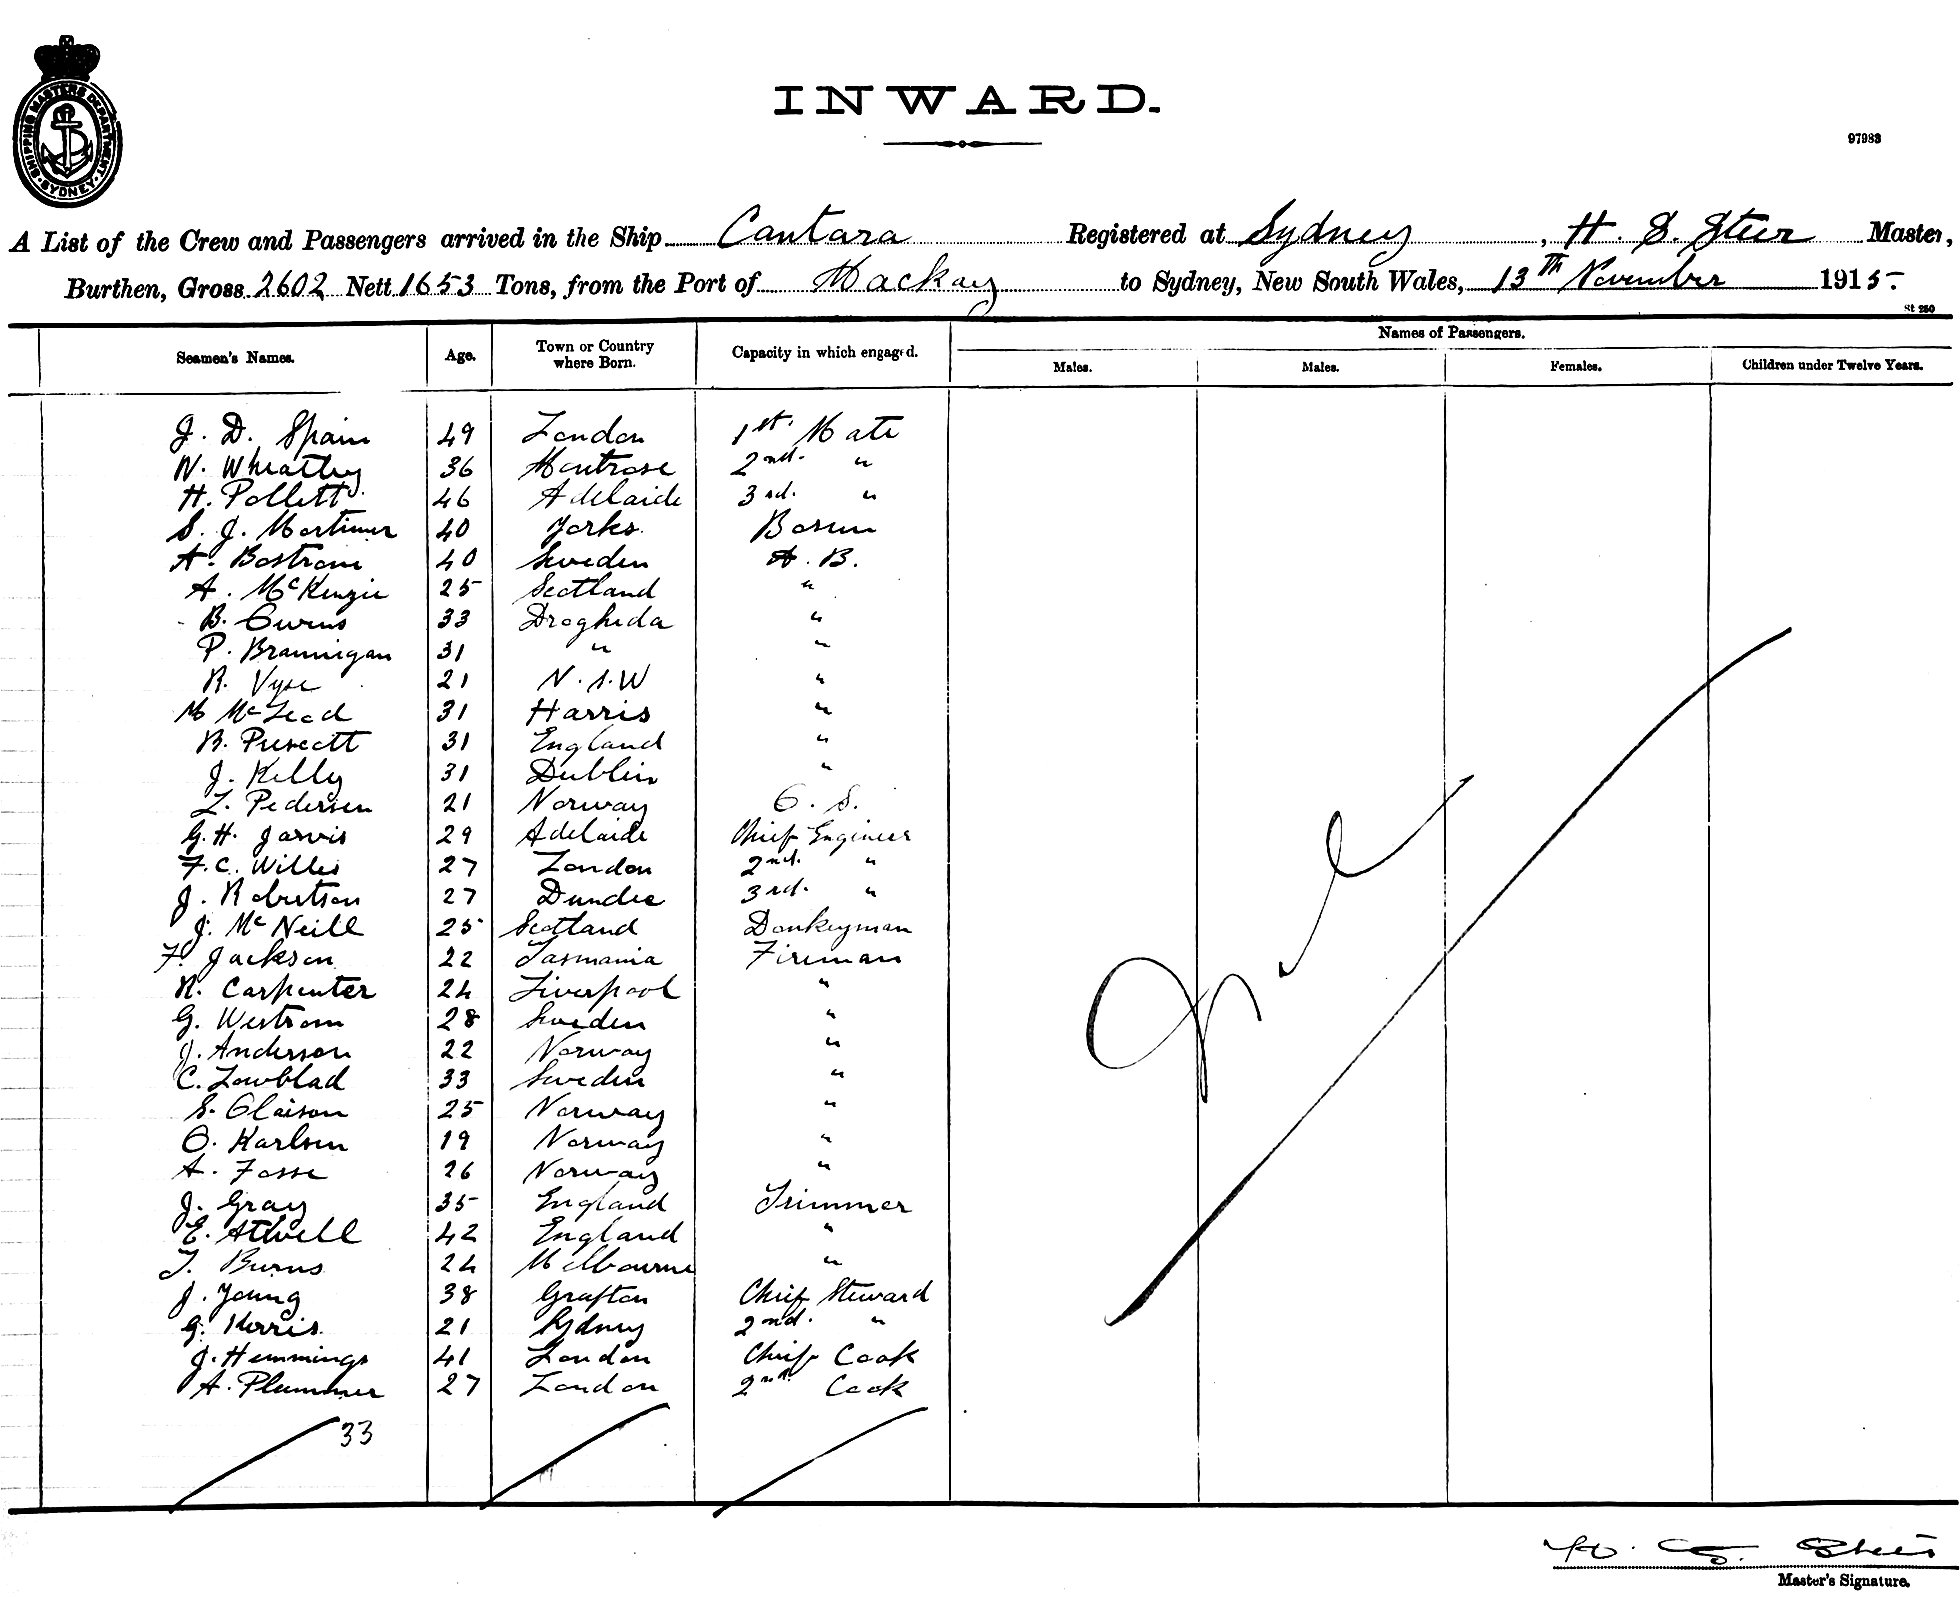 SHIPPING MASTERS DEPARTMENT. SYDNEY.
INWARD.
97983
A List of the Crew and Passengers arrived in the Ship Cantara Registered at Sydney, H. S. Steer Master,
Burthen, Gross 2602 Nett 1653 Tons, from the Port of Mackay to Sydney, New South Wales, 13th November 1915.
St 250
Names of Passengers.
Seamen's Names. Age. Town or Country where Born. Capacity in which engaged. Males. Males. Females. Children under Twelve Years.
J. D. Spain 49 London 1st. Mate
N. Wheatley 36 Montrose 2nd. "
H. Pollett 46 Adelaide 3rd. "
S. J. Mortimer 40 Yorks. Bosun
A. Bostrom 40 Sweden A. B.
A. McKenzie 25 Scotland "
B. Owens 33 Drogheda "
P. Brannigan 31 " "
R. Vyse 21 N.S.W "
M McLeod 31 Harris "
B. Prescott 31 England "
J. Kelly 31 Dublin "
L. Pedersen 21 Norway O. S.
G. H. Jarvis 29 Adelaide Chief Engineer
F. C. Willis 27 London 2nd. "
J. Robertson 27 Dundee 3rd. "
J. McNeill 25 Scotland Donkeyman
F. Jackson 22 Tasmania Fireman
R. Carpenter 24 Liverpool "
G. Westrom 28 Sweden "
J. Anderson 22 Norway "
C. Lowblad 33 Sweden "
S. Olaison 25 Norway "
O. Karlsen 19 Norway "
A. Fosse 26 Norway "
J. Gray 35 England Trimmer
E. Atwell 42 England "
T. Burns 24 Melbourne "
J. Young 38 Grafton Chief Steward
G. Kerris. 21 Sydney 2nd. "
J. Hemmings 41 London Chief Cook
A. Plummer 27 London 2nd. Cook
33
Nil
Master's Signature.